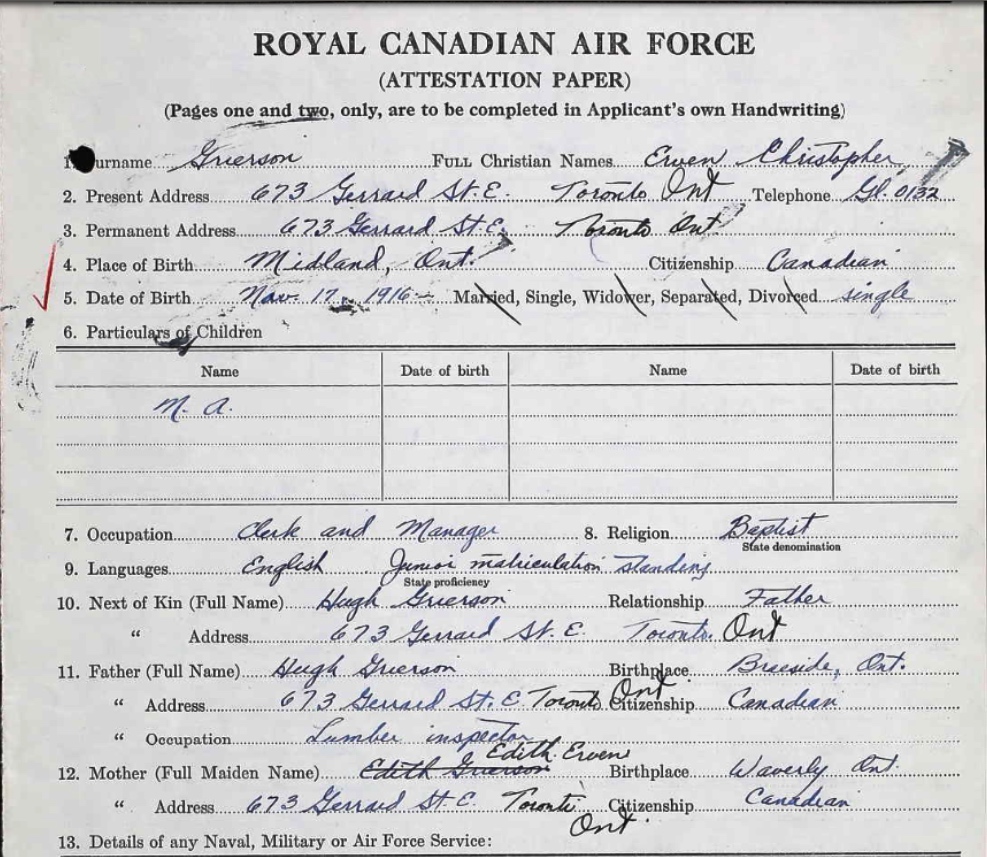 ROYAL CANADIAN AIR FORCE
(ATTESTATION PAPER)
(Pages one and two, only, are to be completed in Applicant's own Handwriting)
1. Surname Grierson FULL Christian Names Erven Christopher
2. Present Address 673 Gerrard St. E. Toronto Ont Telephone Gl. 0132
3. Permanent Address 673 Gerrard St. E. Toronto Ont
4. Place of Birth Midland, Ont. Citizenship Canadian
5. Date of Birth Nov. 17, 1916 Married, Single, Widower, Separated, Divorced single
6. Particulars of Children
Name Date of birth Name Date of birth
N. A.
7. Occupation Clerk and Manager 8. Religion Baptist
State denomination
9. Languages English Junior matriculation standing
State proficiency
10. Next of Kin (Full Name) Hugh Grierson Relationship Father
" Address 673 Gerrard St. E. Toronto. Ont
11. Father (Full Name) Hugh Grierson Birthplace Braeside, Ont.
" Address 673 Gerrard St. E. Toronto Ont Citizenship Canadian
" Occupation Lumber inspector
Edith Erven
12. Mother (Full Maiden Name) Edith Grierson Birthplace Waverly Ont.
" Address 673 Gerrard St. E. Toronto Ont. Citizenship Canadian
13. Details of any Naval, Military or Air Force Service: